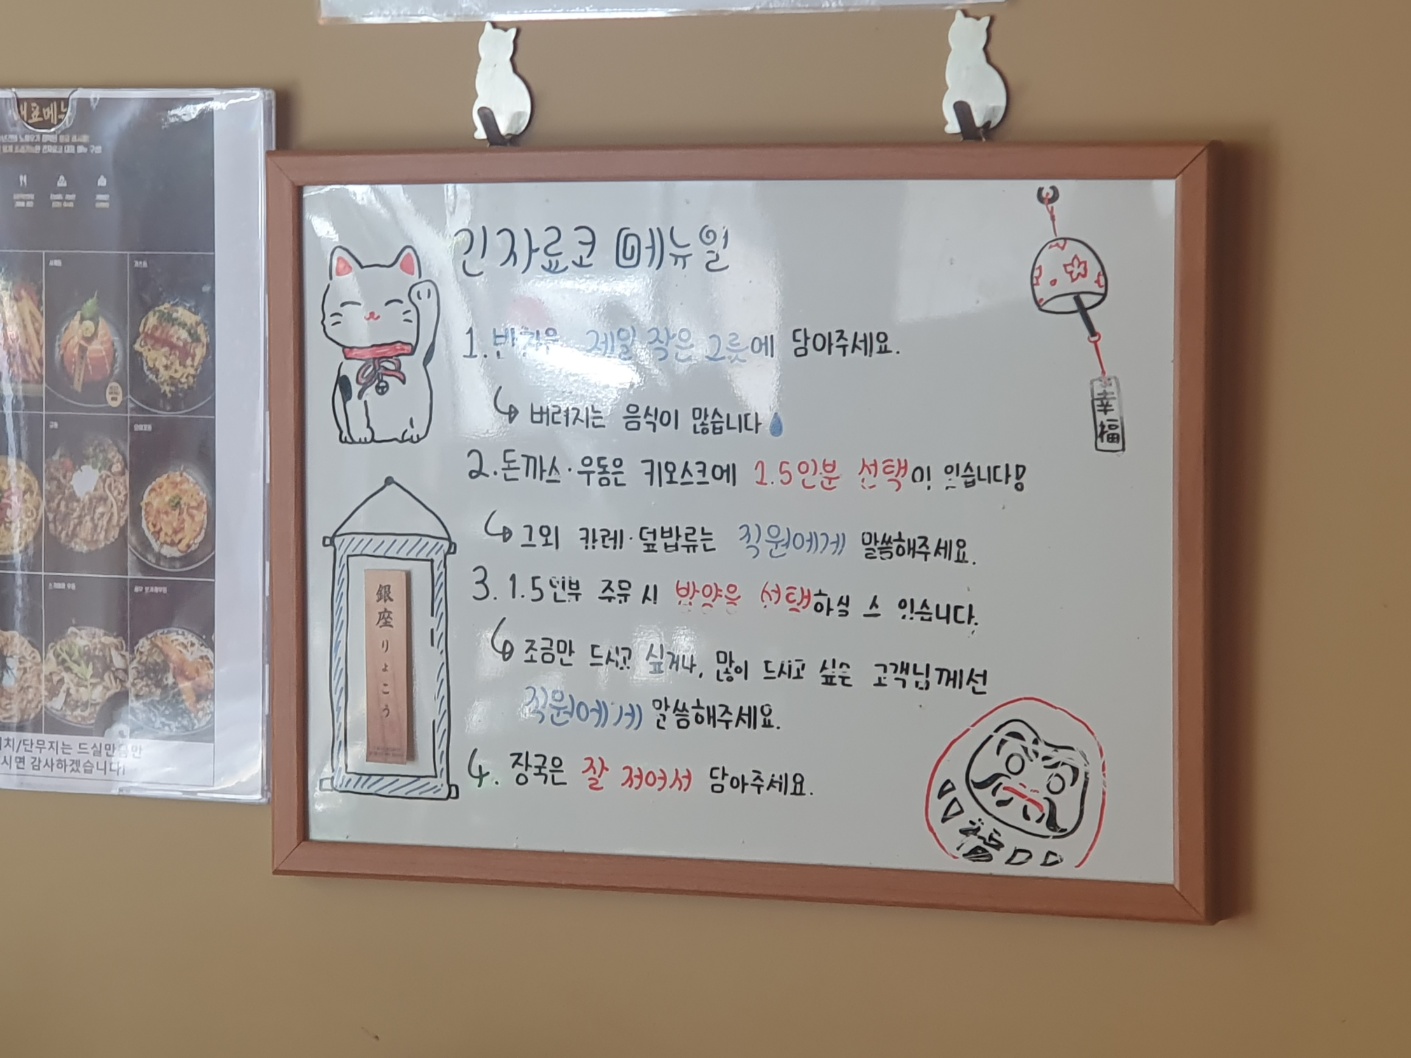 긴자료코 메뉴얼
1. 반찬은 제일 작은 그릇에 담아주세요.
버려지는 음식이 많습니다
2. 돈까스·우동은 키오스크에 1.5인분 선택이 있습니다!
그외 카레·덮밥류는 직원에게 말씀해주세요.
3. 1.5인분 주문시 밥양을 선택하실 수 있습니다.
조금만 드시고 싶거나, 많이 드시고 싶은 고객님께선
직원에게 말씀해주세요.
4. 장국은 잘 저어서 담아주세요.
銀座りょこう
幸福
福
대표메뉴
단무지는 드실만큼만
시면 감사하겠습니다!